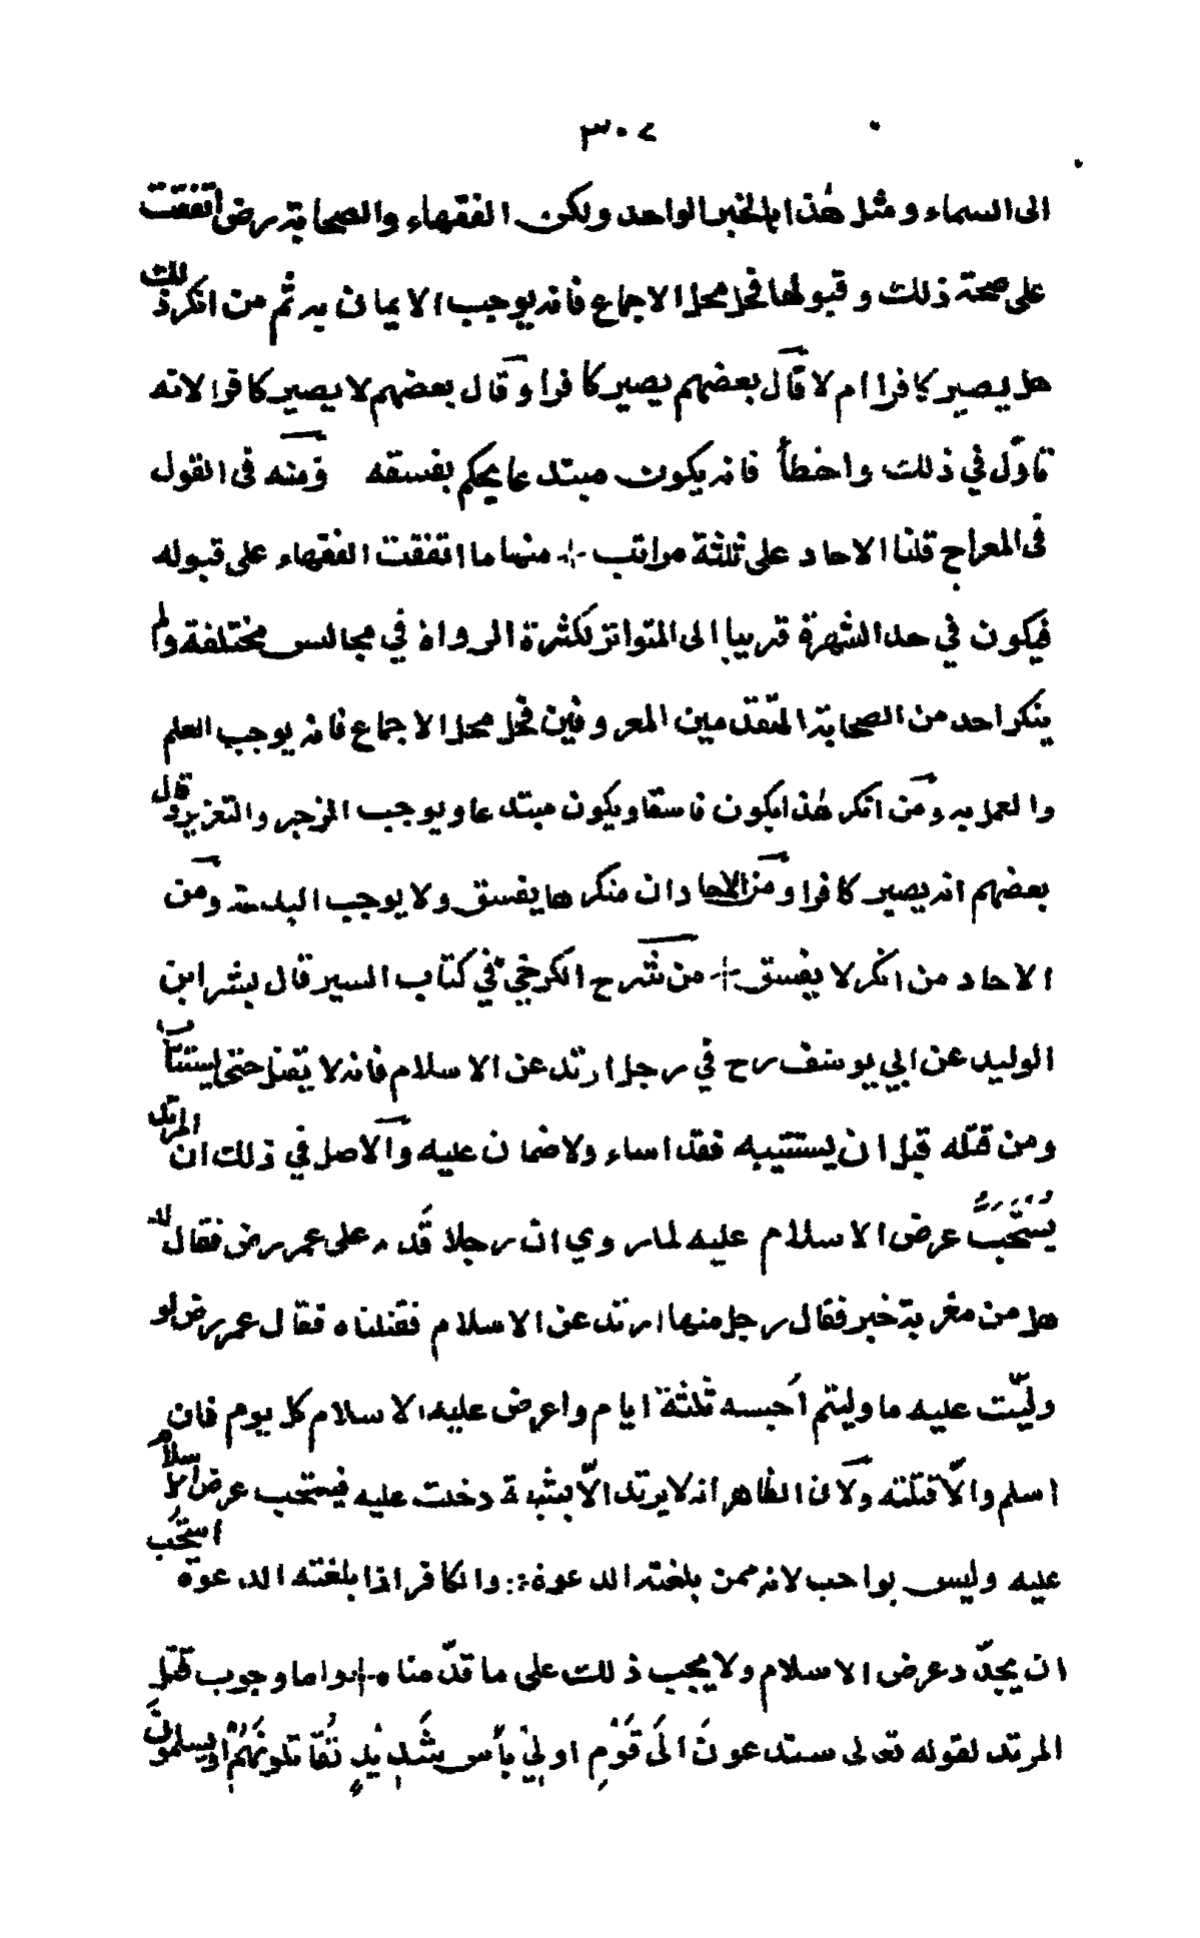 ٣٠٧
الى السماء ومثل هٰذا بالخبر الواحد ولكن الفقهاء والصحابة رض اتفقت
على صحة ذلك وقبولها فحل محل الاجماع فانه يوجب الايمان به ثم من انكر ذلك
هل يصير كافرا ام لا قال بعضهم يصير كافرا وقال بعضهم لا يصير كافرا لانه
تأوّل في ذلك واخطأ فانه يكون مبتدعا يحكم بفسقه ومنه فى القول
فى المعراج قلنا الاحاد على ثلثة مراتب منها ما اتفقت الفقهاء على قبوله
فيكون في حد الشهرة قريبا الى المتواتر لكثرة الرواة في مجالس مختلفة ولم
ينكر احد من الصحابة المتقدمين المعروفين فحل محل الاجماع فانه يوجب العلم
والعمل به ومن انكر هٰذا يكون فاسقا ويكون مبتدعا ويوجب الزجر والتعزير وقال
بعضهم انه يصير كافرا ومن الاحاد ان منكرها يفسق ولا يوجب البدعة ومن
الاحاد من انكر لا يفسق من شرح الكرخي في كتاب السير قال بشر ابن
الوليد عن ابي يوسف رح في رجل ارتد عن الاسلام فانه لا يقتل حتى يستتاب
ومن قتله قبل ان يستتيبه فقد اساء ولا ضمان عليه والاصل في ذلك ان المرتد
يُسْتَحَبُّ عرض الاسلام عليه لما روي ان رجلا قَدم على عمر رض فقال له
هل من مغربة خبر فقال رجل منها ارتد عن الاسلام فقتلناه فقال عمر رض لو
وليّت عليه ما وليتم أحبسه ثلثة ايام واعرض عليه الاسلام كل يوم فان
اسلم والّا قتلته ولان الظاهر انه لا يرتد الّا بشبهة دخلت عليه فيستحب عرض الاسلام
عليه وليس بواجب لانه ممن بلغته الدعوة والكافر اذا بلغته الدعوة استحب
ان يجدّد عرض الاسلام ولا يجب ذلك على ما قدّمناه واما وجوب قتل
المرتد لقوله تعالى ستدعونَ الىَ قَوْمٍ اولِيْ بأْسٍ شَدِيْدٍ تُقَاتلونَهُمْ اويسلمونَ